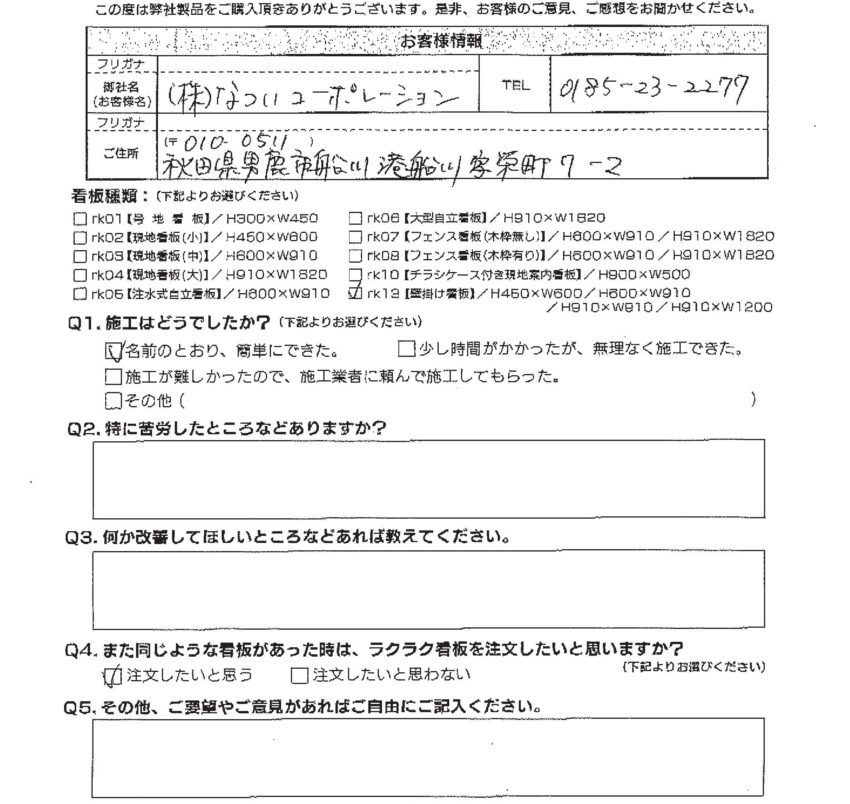 この度は弊社製品をご購入頂きありがとうございます。是非、お客様のご意見、ご感想をお聞かせください。
お客様情報
フリガナ
御社名
(お客様名)
(株)なついコーポレーション
TEL
0185-23-2277
フリガナ
ご住所
(〒010-0511)
秋田県男鹿市船川港船川字栄町7-2
看板種類：(下記よりお選びください)
□rk01【号地看板】/H300×W450
□rk02【現地看板(小)】/H450×W600
□rk03【現地看板(中)】/H600×W910
□rk04【現地看板(大)】/H910×W1820
□rk05【注水式自立看板】/H600×W910
□rk06【大型自立看板】/H910×W1820
□rk07【フェンス看板(木枠無し)】/H600×W910/H910×W1820
□rk08【フェンス看板(木枠有り)】/H600×W910/H910×W1820
□rk10【チラシケース付き現地案内看板】/H900×W500
☑rk13【壁掛け看板】/H450×W600/H600×W910
/H910×W910/H910×W1200
Q1.施工はどうでしたか？(下記よりお選びください)
☑名前のとおり、簡単にできた。 □少し時間がかかったが、無理なく施工できた。
□施工が難しかったので、施工業者に頼んで施工してもらった。
□その他( )
Q2.特に苦労したところなどありますか？
Q3.何か改善してほしいところなどあれば教えてください。
Q4.また同じような看板があった時は、ラクラク看板を注文したいと思いますか？
(下記よりお選びください)
☑注文したいと思う □注文したいと思わない
Q5.その他、ご要望やご意見があればご自由にご記入ください。